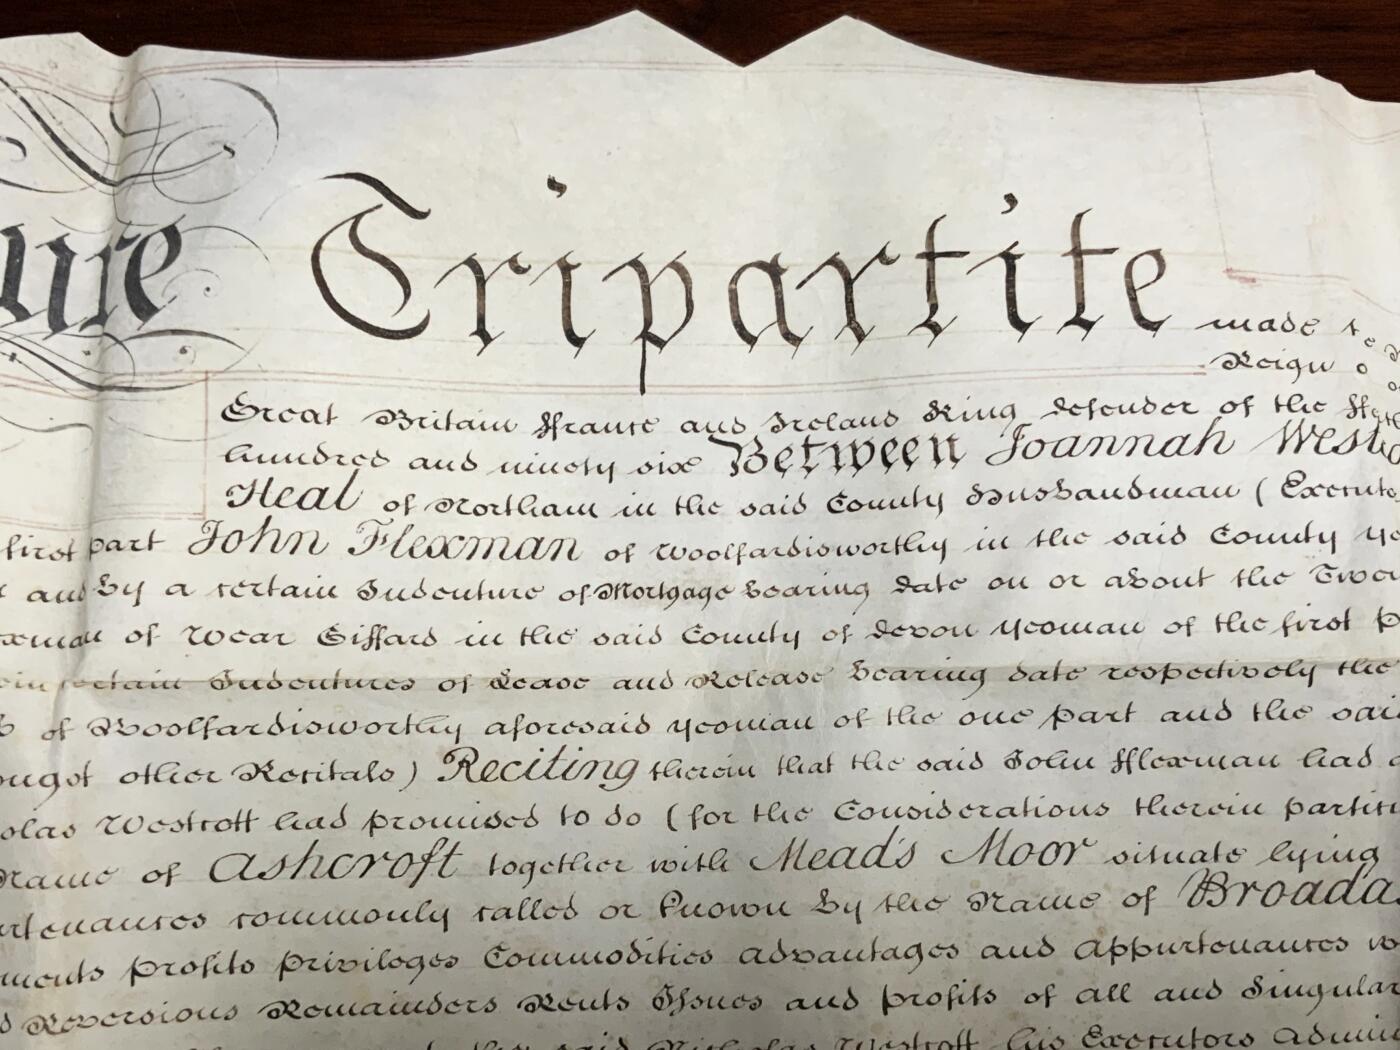 ure Tripartite made
Reign
Great Britain ffrance and Ireland King defender of the
hundred and ninety six Between Joannah West
Heal of Northam in the said County Husbandman ( Execut
first part John Flexman of Woolfardisworthy in the said County
and by a certain Indenture of Mortgage bearing date on or about the
xman of Wear Giffard in the said County of Devon Yeoman of the first p
certain Indentures of Lease and Release bearing date respectively the
of Woolfardisworthy aforesaid yeoman of the one part and the said
ongst other Recitals) Reciting therein that the said John fflexman had
olas Westcott had promised to do (for the Considerations therein parti
Name of Ashcroft together with Mead's Moor situate lying
urtenances commonly called or known by the Name of Broada
ments profits privileges Commodities advantages and appurtenances
d Reversions Remainders Rents Issues and profits of all and Singular
the said Nicholas Westcott his Executors Admin